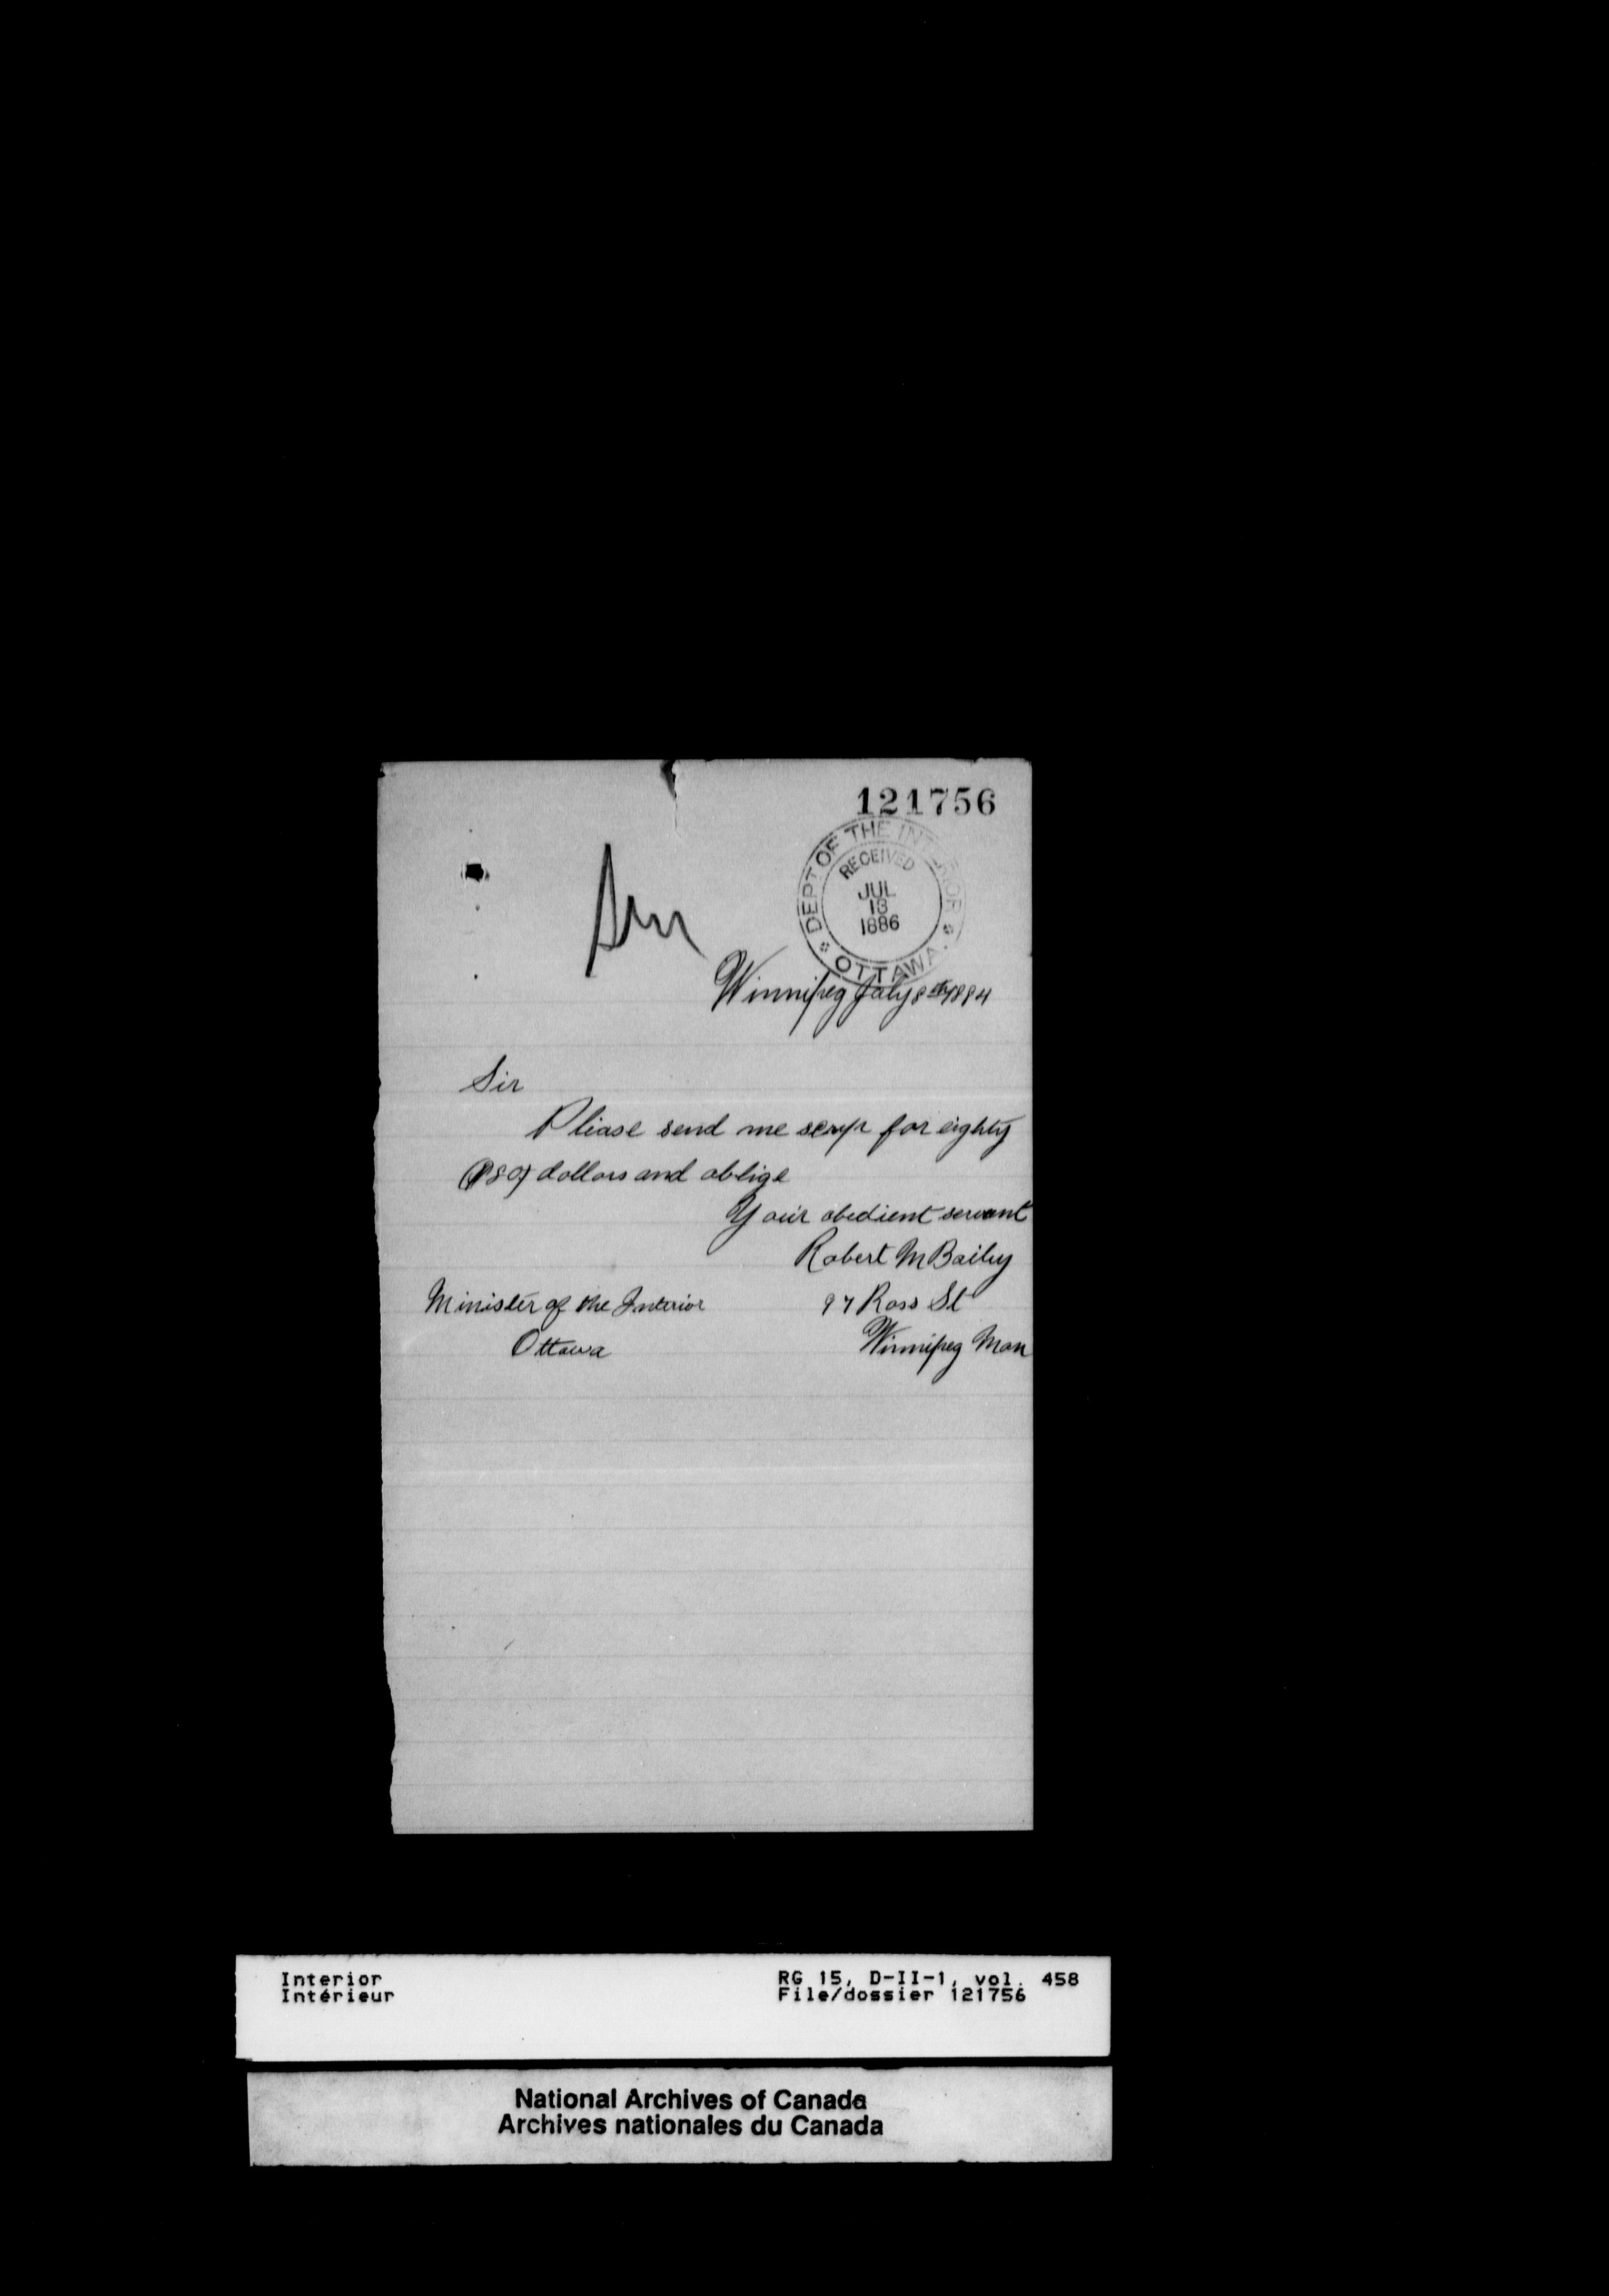 121756
DEPT OF THE INTERIOR
RECEIVED
JUL
13
1886
OTTAWA.
Winnipeg July 8th 1884
Sir
Please send me scrip for eighty
($80) dollars and oblige
Your obedient servant
Robert M Bailey
Minister of the Interior 97 Ross St
Ottawa Winnipeg Man
Interior RG 15, D-II-1, vol. 458
Intérieur File/dossier 121756
National Archives of Canada
Archives nationales du Canada